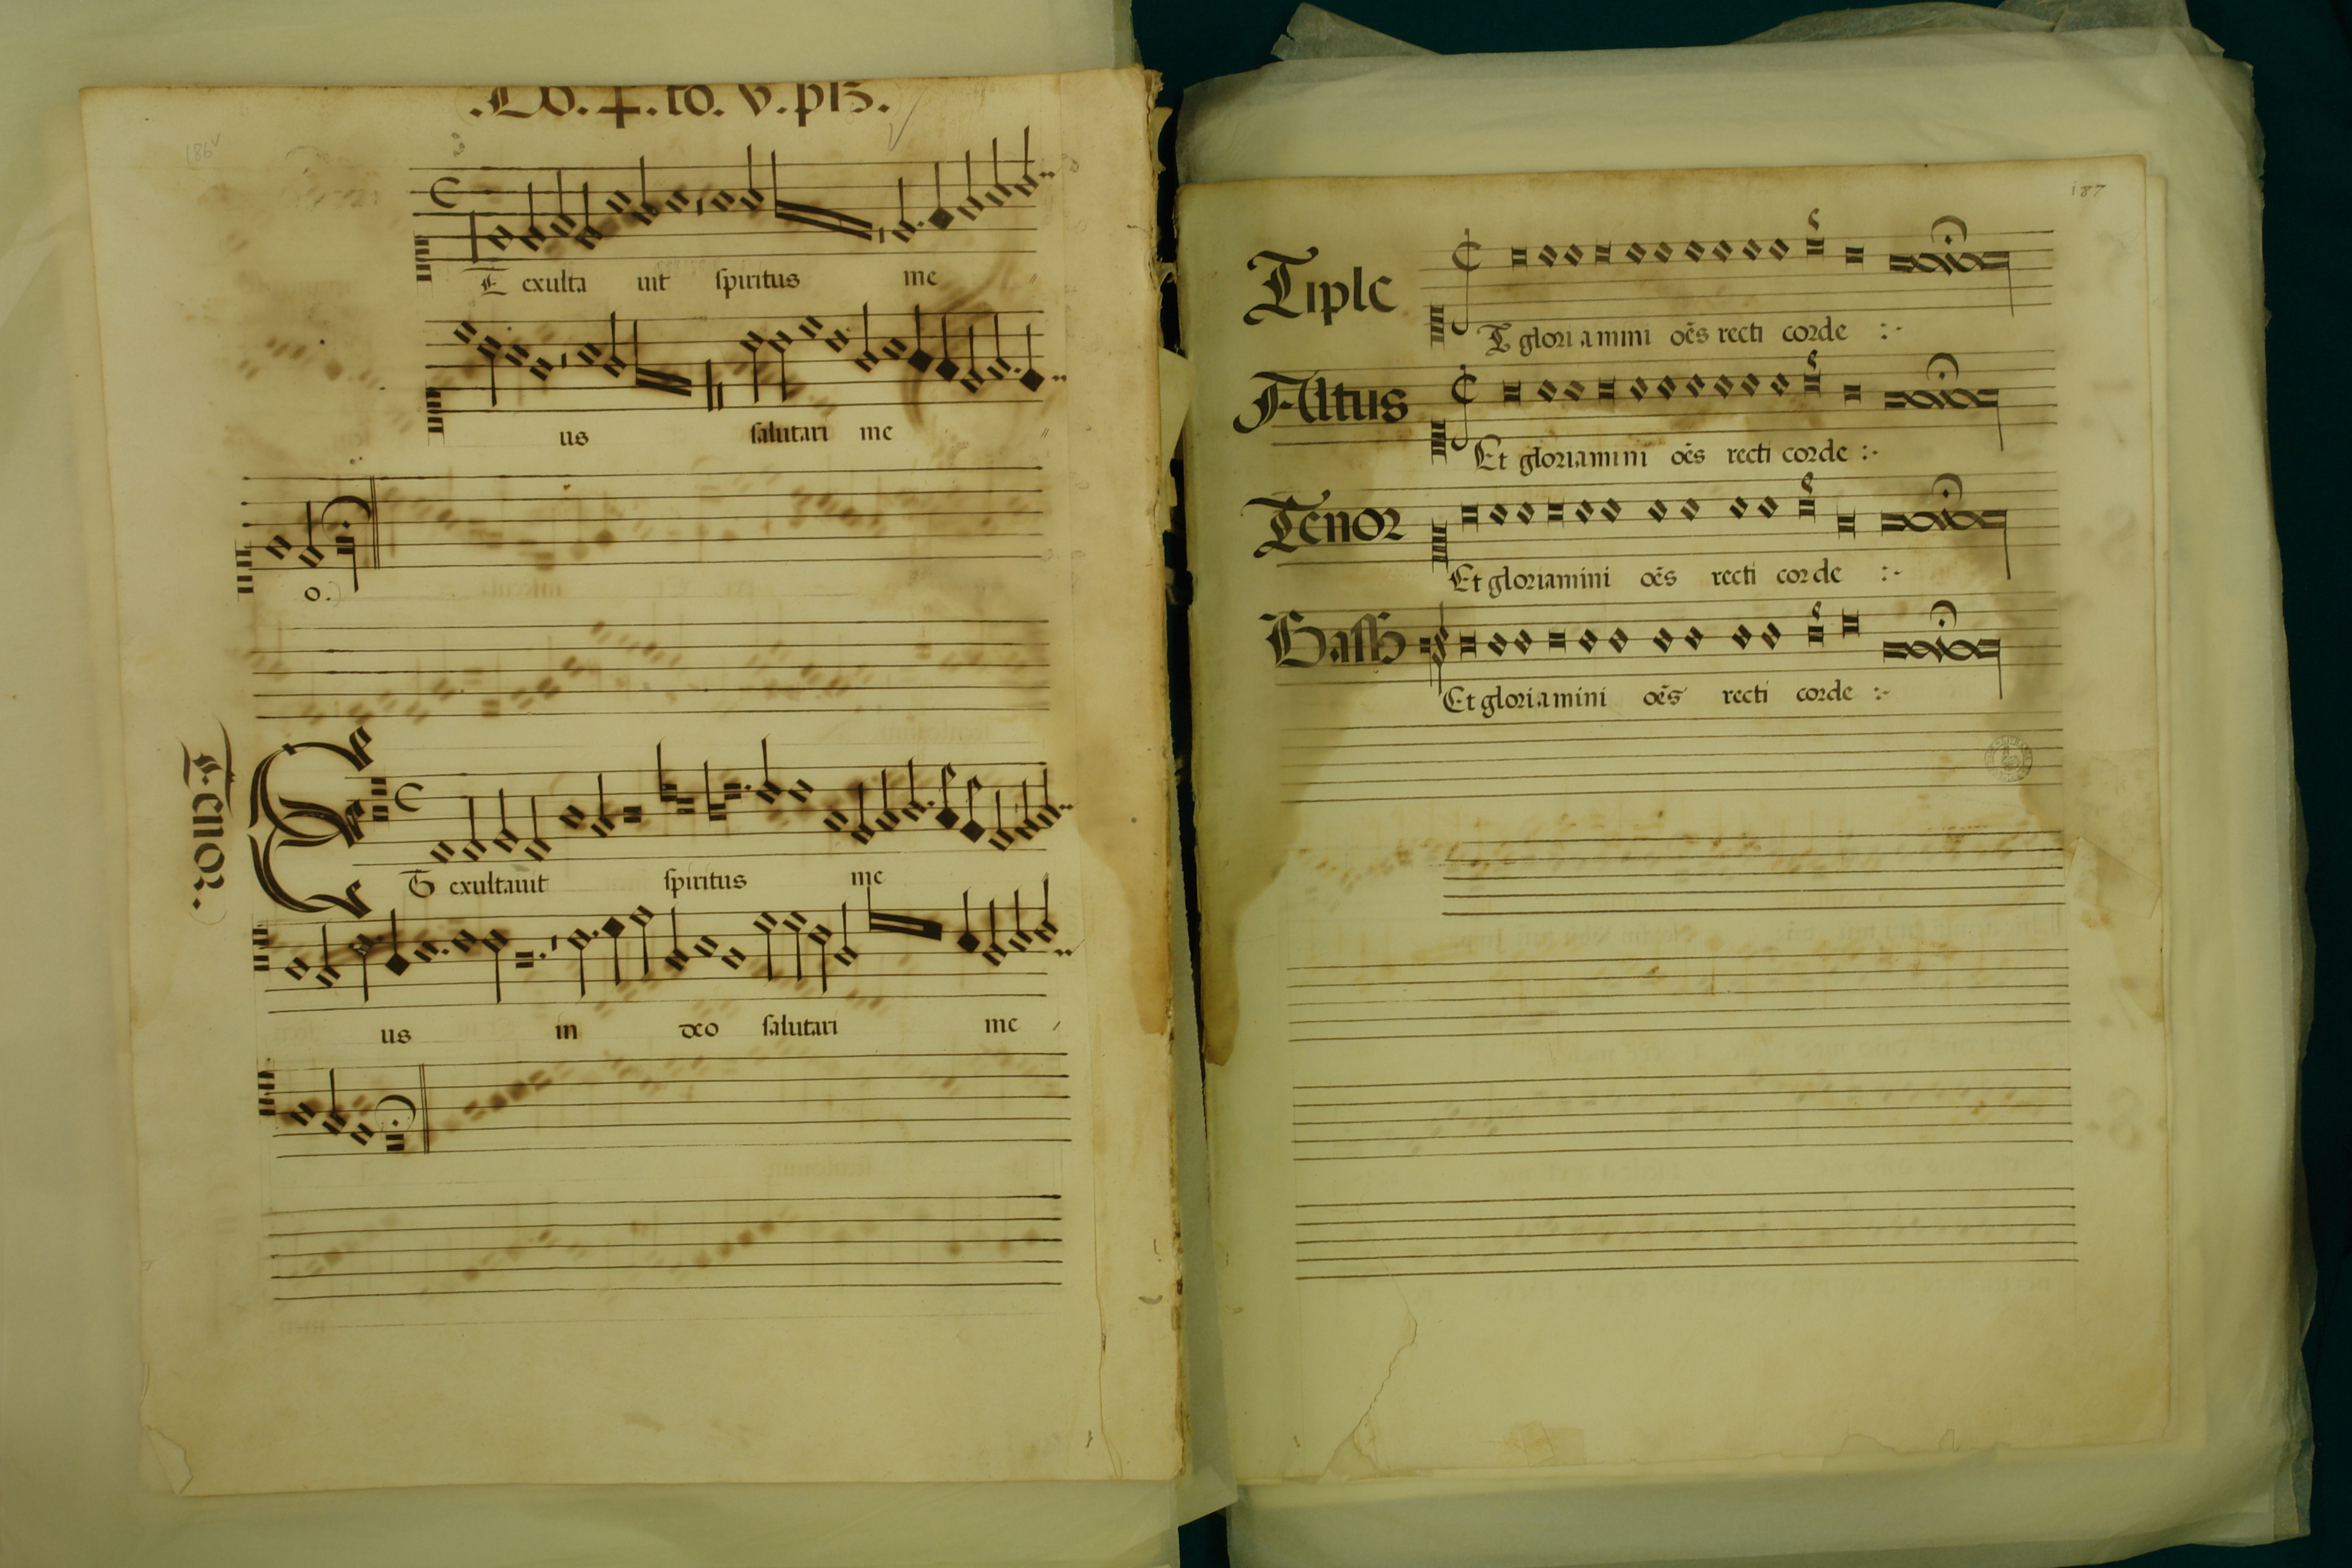 186v
to. V. pts.
Et exulta uit spiritus me
us salutari me
o.
Tenor.
Et exultauit spiritus me
us in deo salutari me
187
Tiple
Et gloriamini oēs recti corde :-
Altus
Et gloriamini oēs recti corde :-
Tenor
Et gloriamini oēs recti corde :-
Et gloriamini oēs recti corde :-